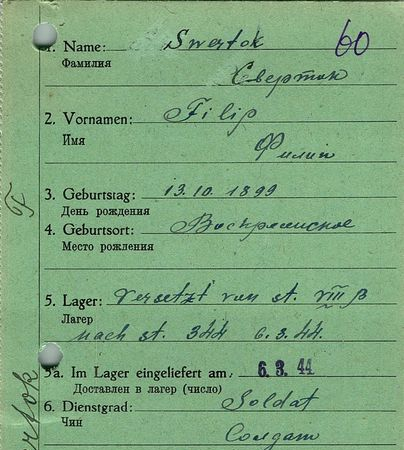 1. Name: Swertok 60
Фамилия
Сверток
2. Vornamen: Filip
Имя
Филип
3. Geburtstag: 13.10.1899
День рождения
4. Geburtsort: Воскресенское
Место рождения
5. Lager: versetzt von St. VIII B
Лагер
nach St. 344 6.3.44.
5a. Im Lager eingeliefert am: 6.3.44
Доставлен в лагер (число)
6. Dienstgrad: Soldat
Чин
Солдат